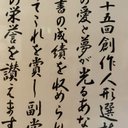 十五回創作人形選抜
の愛と夢が光るあな
書の成績を収められ
てこれを賞し副賞
の栄誉を讃えます